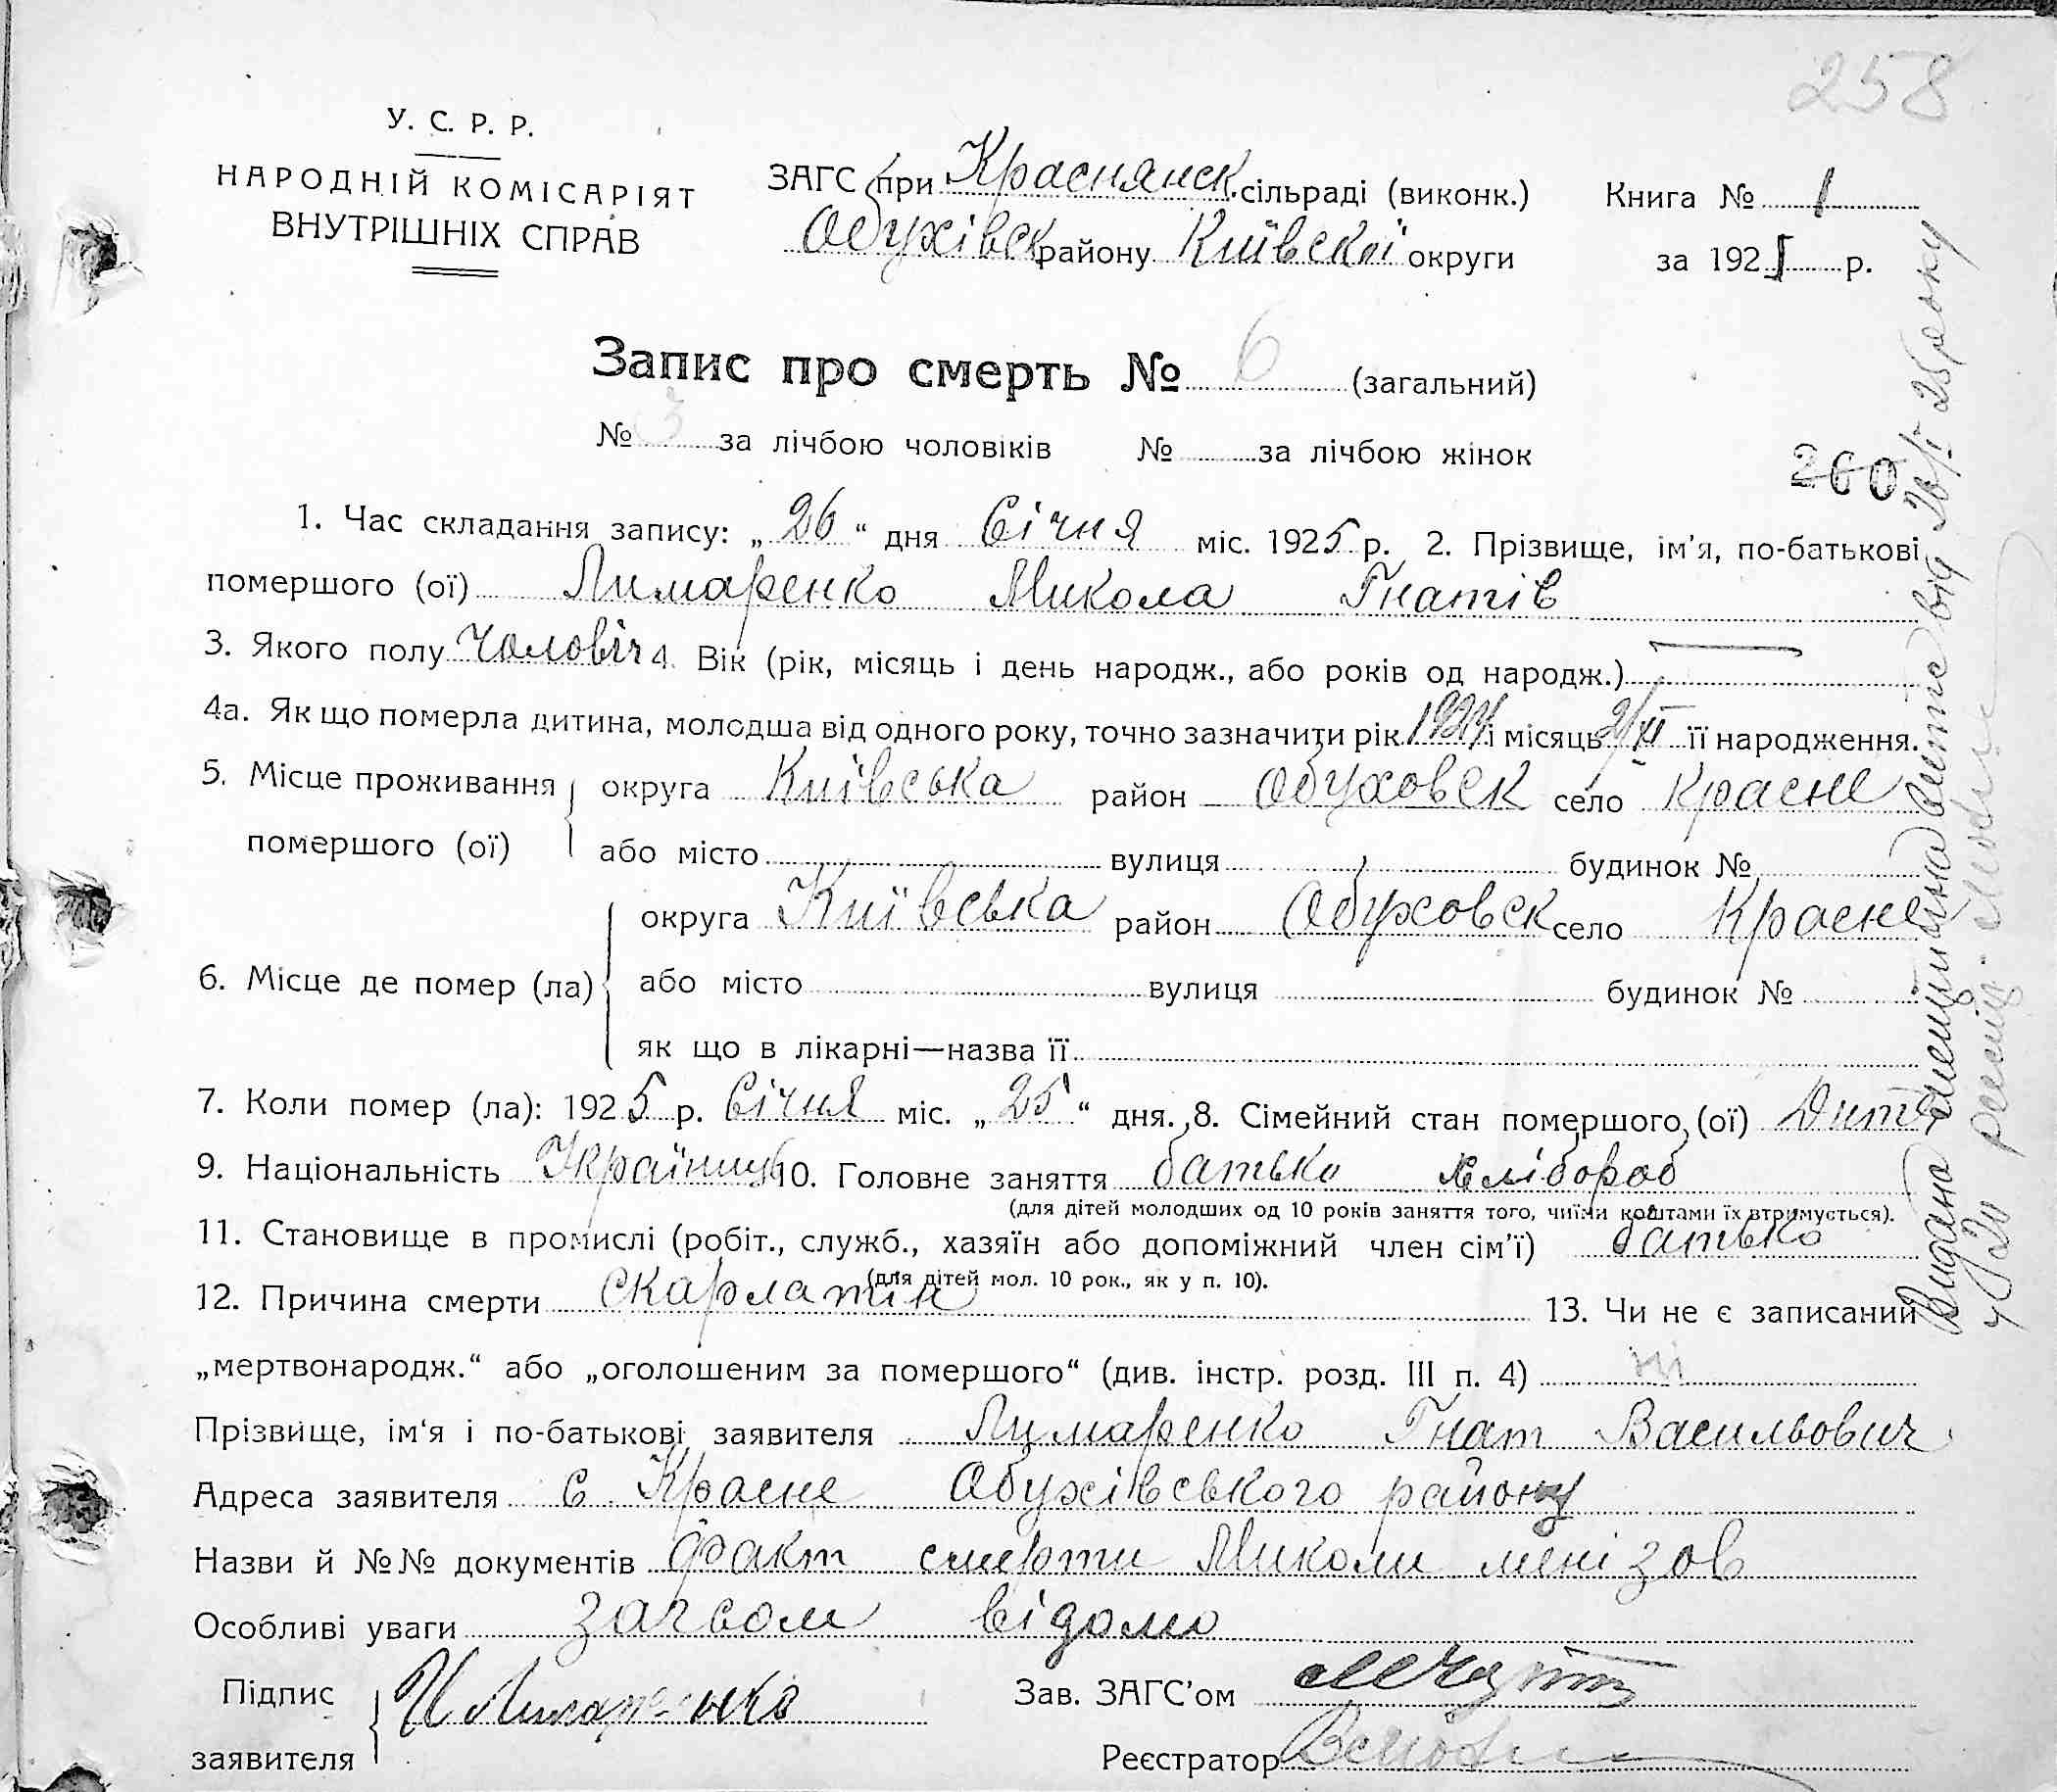 258
У. С. Р. Р.
НАРОДНІЙ КОМІСАРІЯТ
ВНУТРІШНІХ СПРАВ
ЗАГС при Краснянск. сільраді (виконк.)
Обухівск району Київскої округи
Книга № 1
за 1925 р.
Запис про смерть № 6 (загальний)
№ 3 за лічбою чоловіків № за лічбою жінок
260
1. Час складання запису: „26“ дня Січня міс. 1925 р. 2. Прізвище, ім'я, по-батькові
помершого (ої) Лимаренко Микола Гнатів
3. Якого полу Чоловіч 4. Вік (рік, місяць і день народж., або років од народж.) —
4а. Як що померла дитина, молодша від одного року, точно зазначити рік 1924 і місяць 2/XI її народження.
5. Місце проживання помершого (ої) округа Київська район Обуховск село Красне
або місто вулиця будинок №
6. Місце де помер (ла) округа Київська район Обуховск село Красне
або місто вулиця будинок №
як що в лікарні—назва її
7. Коли помер (ла): 1925 р. Січня міс. „25“ дня. 8. Сімейний стан помершого (ої) Дитя
9. Національність Українець 10. Головне заняття батько хлібороб
(для дітей молодших од 10 років заняття того, чиїми коштами їх втримується).
11. Становище в промислі (робіт., служб., хазяїн або допоміжний член сім'ї) батько
(для дітей мол. 10 рок., як у п. 10).
12. Причина смерти Скарлатін 13. Чи не є записаний
„мертвонародж.“ або „оголошеним за помершого“ (див. інстр. розд. III п. 4) ні
Прізвище, ім'я і по-батькові заявителя Лимаренко Гнат Васильович
Адреса заявителя с. Красне Обухівського району
Назви й №№ документів факт смерти Миколи мені зов
Особливі уваги загсом відомо
Підпис заявителя Лимаренко
Зав. ЗАГС'ом
Реєстратор
Видано від 26/I 25 року